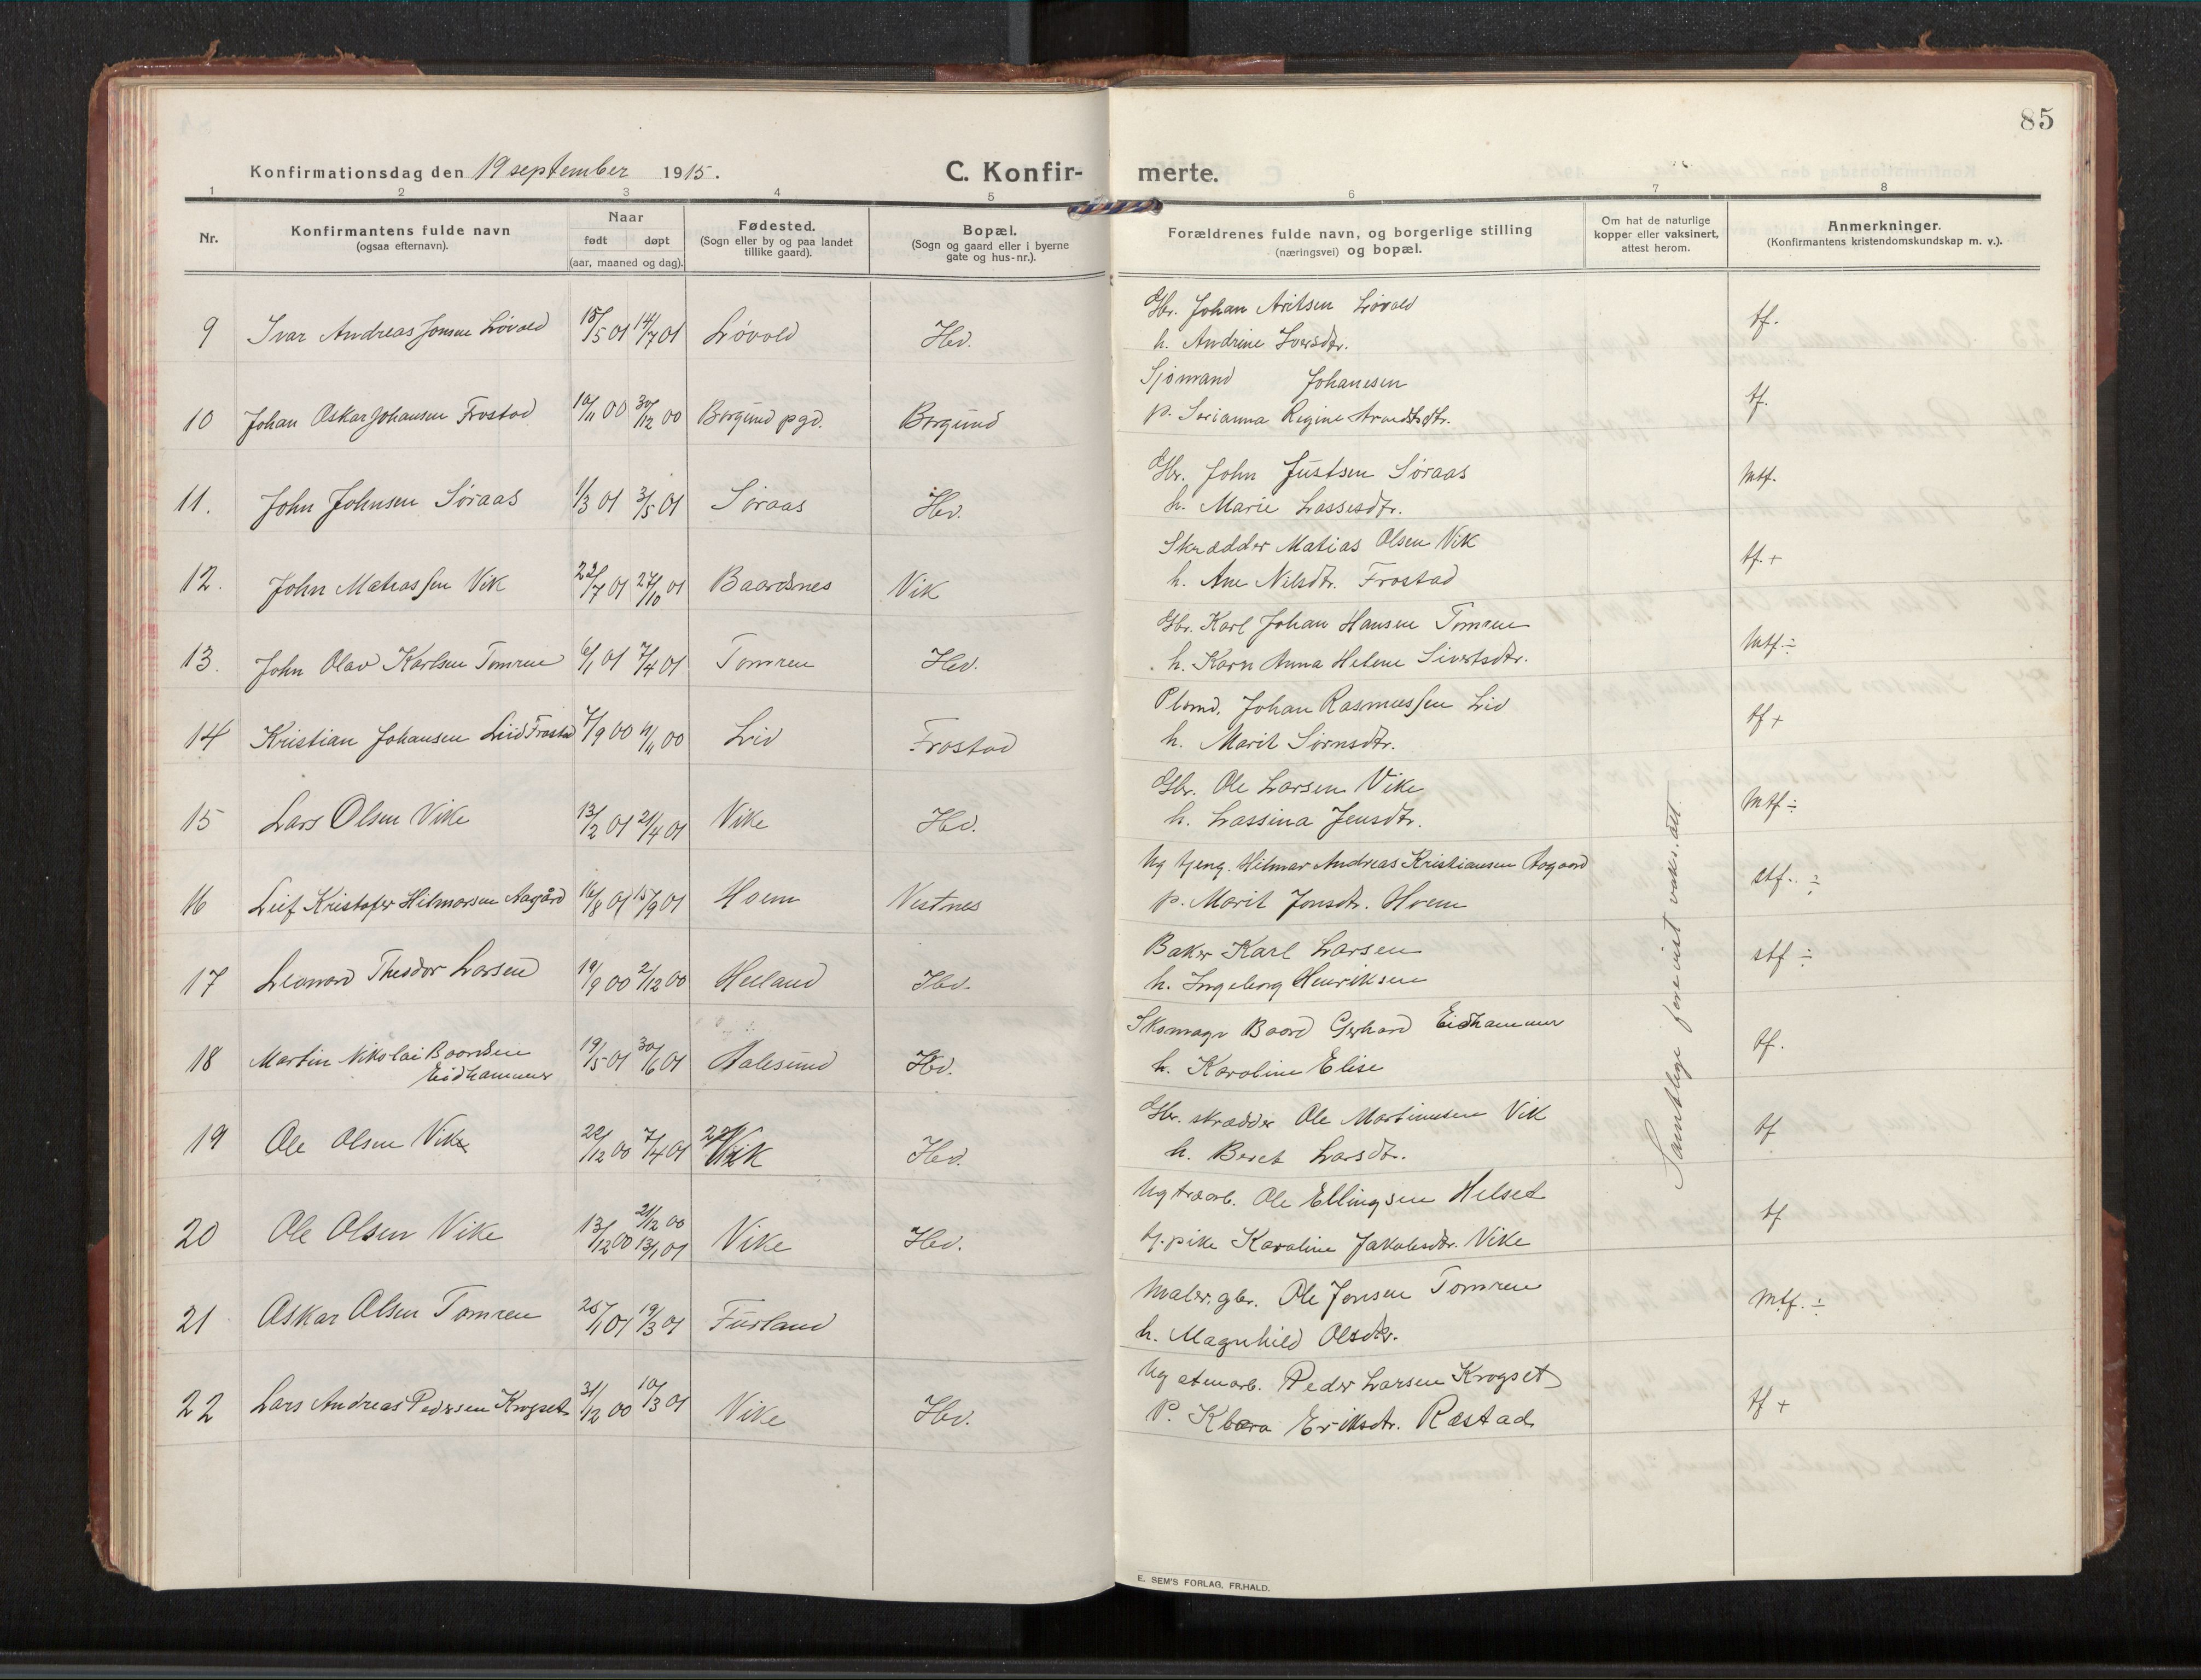 85
Konfirmationsdag den 19 september 1915.
C. Konfir-
merte.
1 2 3 4 5 6 7 8
Nr.
Konfirmantens fulde navn
(ogsaa efternavn).
Naar
født døpt
(aar, maaned og dag).
Fødested.
(Sogn eller by og paa landet
tillike gaard).
Bopæl.
(Sogn og gaard eller i byerne
gate og hus-nr.).
Forældrenes fulde navn, og borgerlige stilling
(næringsvei) og bopæl.
Om hat de naturlige
kopper eller vaksinert,
attest herom.
Anmerkninger.
(Konfirmantens kristendomskundskap m. v.).
9 Ivar Andreas Jonsen Løvold 15/5 01 14/7 01 Løvold Ibd. Gbr. Johan Løvold tf.
h. Andrine Iversdtr.
10 Johan Oskar Johansen Frostad 10/11 00 30/12 00 Borgund pgd. Borgund Sjømand Johansen tf.
p. Serianna Regine
11. John Johnsen Søraas 1/3 01 3/5 01 Søraas Ibd. Gbr. John Justsen Søraas Mtf.
h. Marie Lassesdtr.
12. John Matiassen Vik 22/7 01 27/10 01 Baardsnes Vik Skrædder Matias Olsen Vik tf. +
h. Ane Nilsdtr. Frostad
13. John Olav Karlsen Tomren 6/1 01 7/4 01 Tomren Ibd. Gbr. Karl Johan Hansen Tomren Mtf. ÷
h. Karn Anna Helene Sivertsdtr.
14 Kristian Johansen Lid Frostad 7/9 00 4/11 00 Lid Frostad Plsmd. Johan Rasmussen Lid tf +
h. Marit Sørnsdtr.
15 Lars Olsen Vike 13/2 01 21/4 01 Vike Ibd. Gbr. Ole Larsen Vike Mtf ÷
h. Lassina Jensdtr.
16 Leif Kristofer Hilmarsen Aagård 16/8 01 15/9 01 Hoem Vestnes Ug tjeng. Hilmar Andreas Kristiansen Aagaard stf. ÷
p. Marit Jonsdtr. Hoem
17 Leonard Theodor Larsen 19/9 00 2/12 00 Helland Ibd. Baker Karl Larsen stf ÷
h. Ingeborg Henriksen
18 Martin Nikolai Baardsen 19/5 01 30/6 01 Aalesund Ibd. Skomager Baard Gerhard Eidhammer tf.
Eidhammer h. Karoline Elise
19 Ole Olsen Vik 22/12 00 7/4 01 Vik Ibd. Gbr. skrædder Ole Martinusen Vik tf
h. Beret Larsdtr.
20 Ole Olsen Vike 13/12 00 21/12 00 13/1 01 Vike Ibd. Ug træarb. Ole Ellingsen Helset tf
tj. pike Karoline Jakobsdtr. Vike
21 Oskar Olsen Tomren 25/1 01 19/3 01 Furland Maler, gbr. Ole Jonsen Tomren Mtf. ÷
h. Magnhild Olsdtr.
22 Lars Andreas Pedersen Krogset 31/12 00 10/3 01 Vike Ibd. Ug Peder Larsen Krogset tf +
P. Klara Eriksdtr. Rastad
Samtlige forevist vaks. att.
E. SEM'S FORLAG, FR.HALD.